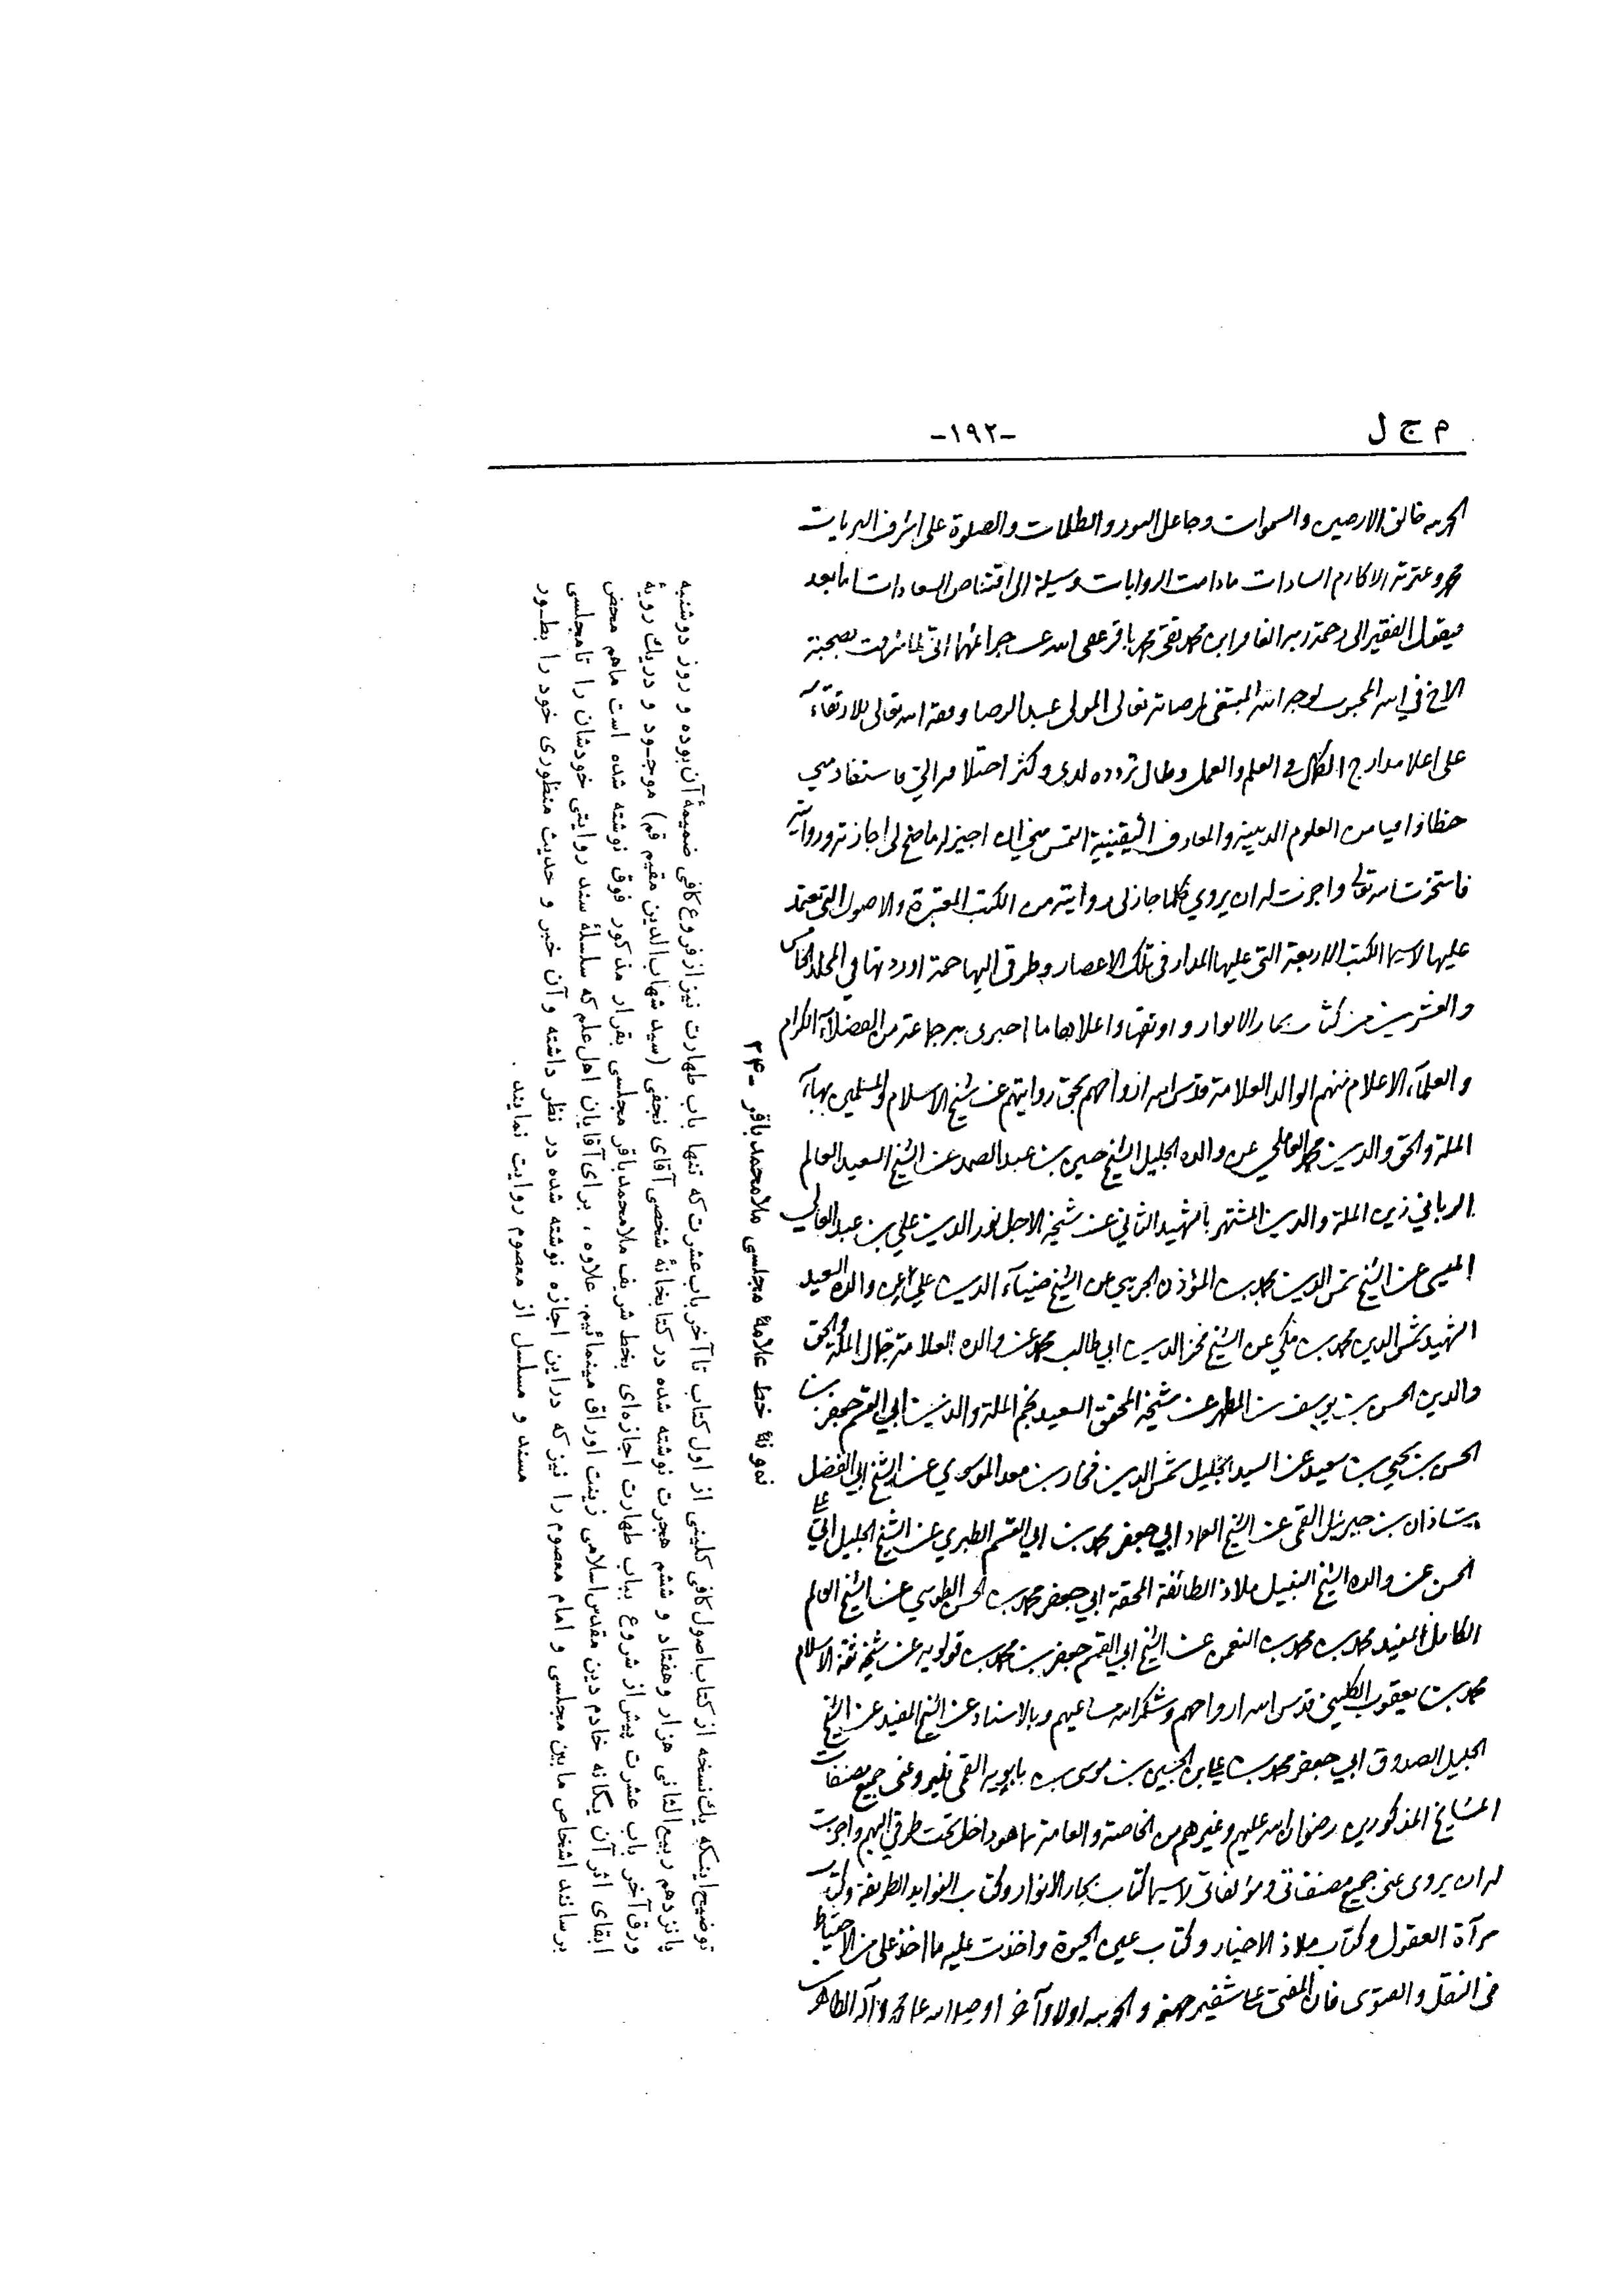 م ج ل
-۱۹۲-
الحمد لله خالق الارضين والسموات وجاعل النور والظلمات والصلوة على اشرف البريات
محمد وعترته الاكارم السادات مادامت الروايات وسيلة الى اقتناص السعادات اما بعد
فيقول الفقير الى رحمة ربه الغافر ابن محمد تقي محمد باقر عفى الله عن جرائمهما انّي لمّا شرفت بصحبة
الاخ في الله المحبوب لوجه الله المبتغي لمرضاته تعالى المولى عبد الرضا وفقه الله تعالى للارتقاء
على اعلا مدارج الكمال في العلم والعمل وطال تردده لدي وكثر اختلافه الي فاستفاد مني
حظا وافيا من العلوم الدينية والمعارف اليقينية التمس مني ان اجيز له ما صح لي اجازته وروايته
فاستخرت الله تعالى واجزت له ان يروي كلما جاز لي روايته من الكتب المعتبرة والاصول التي تعتمد
عليها لا سيما الكتب الاربعة التي عليها المدار في تلك الاعصار وطرقي اليها جمة اوردتها في المجلد الخامس
والعشرين من كتاب بحار الانوار واوثقها واعلاها ما اخبرني به جماعة من الفضلاء الكرام
والعلماء الاعلام منهم الوالد العلامة قدس الله ارواحهم بحق روايتهم عن شيخ الاسلام والمسلمين بهاء
الملة والحق والدين محمد العاملي عن والده الجليل الشيخ حسين بن عبد الصمد عن الشيخ السعيد العالم
الرباني زين الملة والدين المشتهر بالشهيد الثاني عن شيخه الاجل نور الدين علي بن عبد العالي
الميسي عن الشيخ شمس الدين محمد بن المؤذن الجزيني عن الشيخ ضياء الدين علي عن والده السعيد
الشهيد شمس الدين محمد بن مكي عن الشيخ فخر الدين ابي طالب محمد عن والده العلامة جمال الملة والحق
والدين الحسن بن يوسف بن المطهر عن شيخه المحقق السعيد نجم الملة والدين ابي القسم جعفر بن
الحسن بن يحيى بن سعيد عن السيد الجليل شمس الدين فخار بن معد الموسوي عن الشيخ ابي الفضل
شاذان بن جبرئيل القمي عن الشيخ العماد ابي جعفر محمد بن ابي القسم الطبري عن الشيخ الجليل ابي علي
الحسن عن والده الشيخ النبيل ملاذ الطائفة المحقة ابي جعفر محمد بن الحسن الطوسي عن الشيخ العالم
الكامل المفيد محمد بن محمد بن النعمن عن الشيخ ابي القسم جعفر بن محمد بن قولويه عن شيخه ثقة الاسلام
محمد بن يعقوب الكليني قدس الله ارواحهم وشكر الله مساعيهم وبالاسناد عن الشيخ المفيد عن الشيخ
الجليل الصدوق ابي جعفر محمد بن علي بن الحسين بن موسى بن بابويه القمي فليرو عني جميع مصنفات
المشايخ المذكورين رضوان الله عليهم وغيرهم من الخاصة والعامة مما هو داخل تحت طرقي اليهم واجزت
له ان يروي عني جميع مصنفاتي ومؤلفاتي لا سيما كتاب بحار الانوار وكتاب الفوايد الطريفة وكتاب
مرآة العقول وكتاب ملاذ الاخيار وكتاب عين الحيوة واخذت عليه ما اخذ علي من الاحتياط
في النقل والفتوى فان المفتي على شفير جهنم والحمد لله اولا وآخرا وصلى الله على محمد وآله الطاهرين
نمونهٔ خط علامهٔ مجلسی ملامحمدباقر -۲۴
توضیح اینکه یك نسخه از کتاب اصول کافی کلینی از اول کتاب تا آخر باب عشرت که تنها باب طهارت نیز از فروع کافی ضمیمهٔ آن بوده و روز دوشنبه
پانزدهم ربیع‌الثانی هزار وهفتاد و ششم هجرت نوشته شده در کتابخانهٔ شخصی آقای نجفی (سید شهاب‌الدین مقیم قم) موجـود و دریك رویهٔ
ورق آخر باب عشرت پیش از شروع بباب طهارت اجازه‌ای بخط شریف ملامحمدباقر مجلسی بقرار مذکور فوق نوشته شده است ماهم محض
ابقای اثر آن یگانه خادم دین مقدس اسلامی زینت اوراق مینمائیم. علاوه، برای آقایان اهل علم که سلسلهٔ سند روایتی خودشان را تامجلسی
برسانند اشخاص مابین مجلسی و امام معصوم را نیز که دراین اجازه نوشته شده در نظر داشته و آن خبر و حدیث منظوری خود را بطـور
مسند و مسلسل از معصوم روایت نمایند .